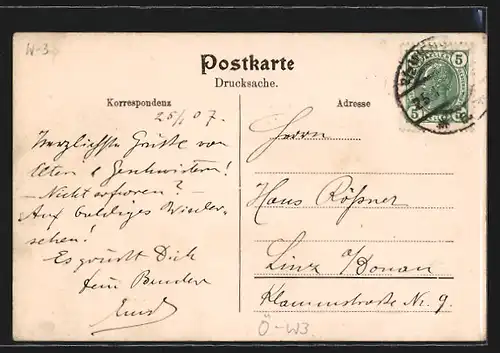 W-3
Postkarte
Drucksache.
Korrespondenz
Adresse
5
5 5
25/1 07.
Herzlichste Grüße von
Eltern & Geschwistern!
– Nicht erfroren? –
Auf baldiges Wieder-
sehen!
Es grüßt Dich
Dein Bruder
Ernst
Herrn
Hans Rößner
Linz a/Donau
Klammstraße Nr. 9.
Ö-W3